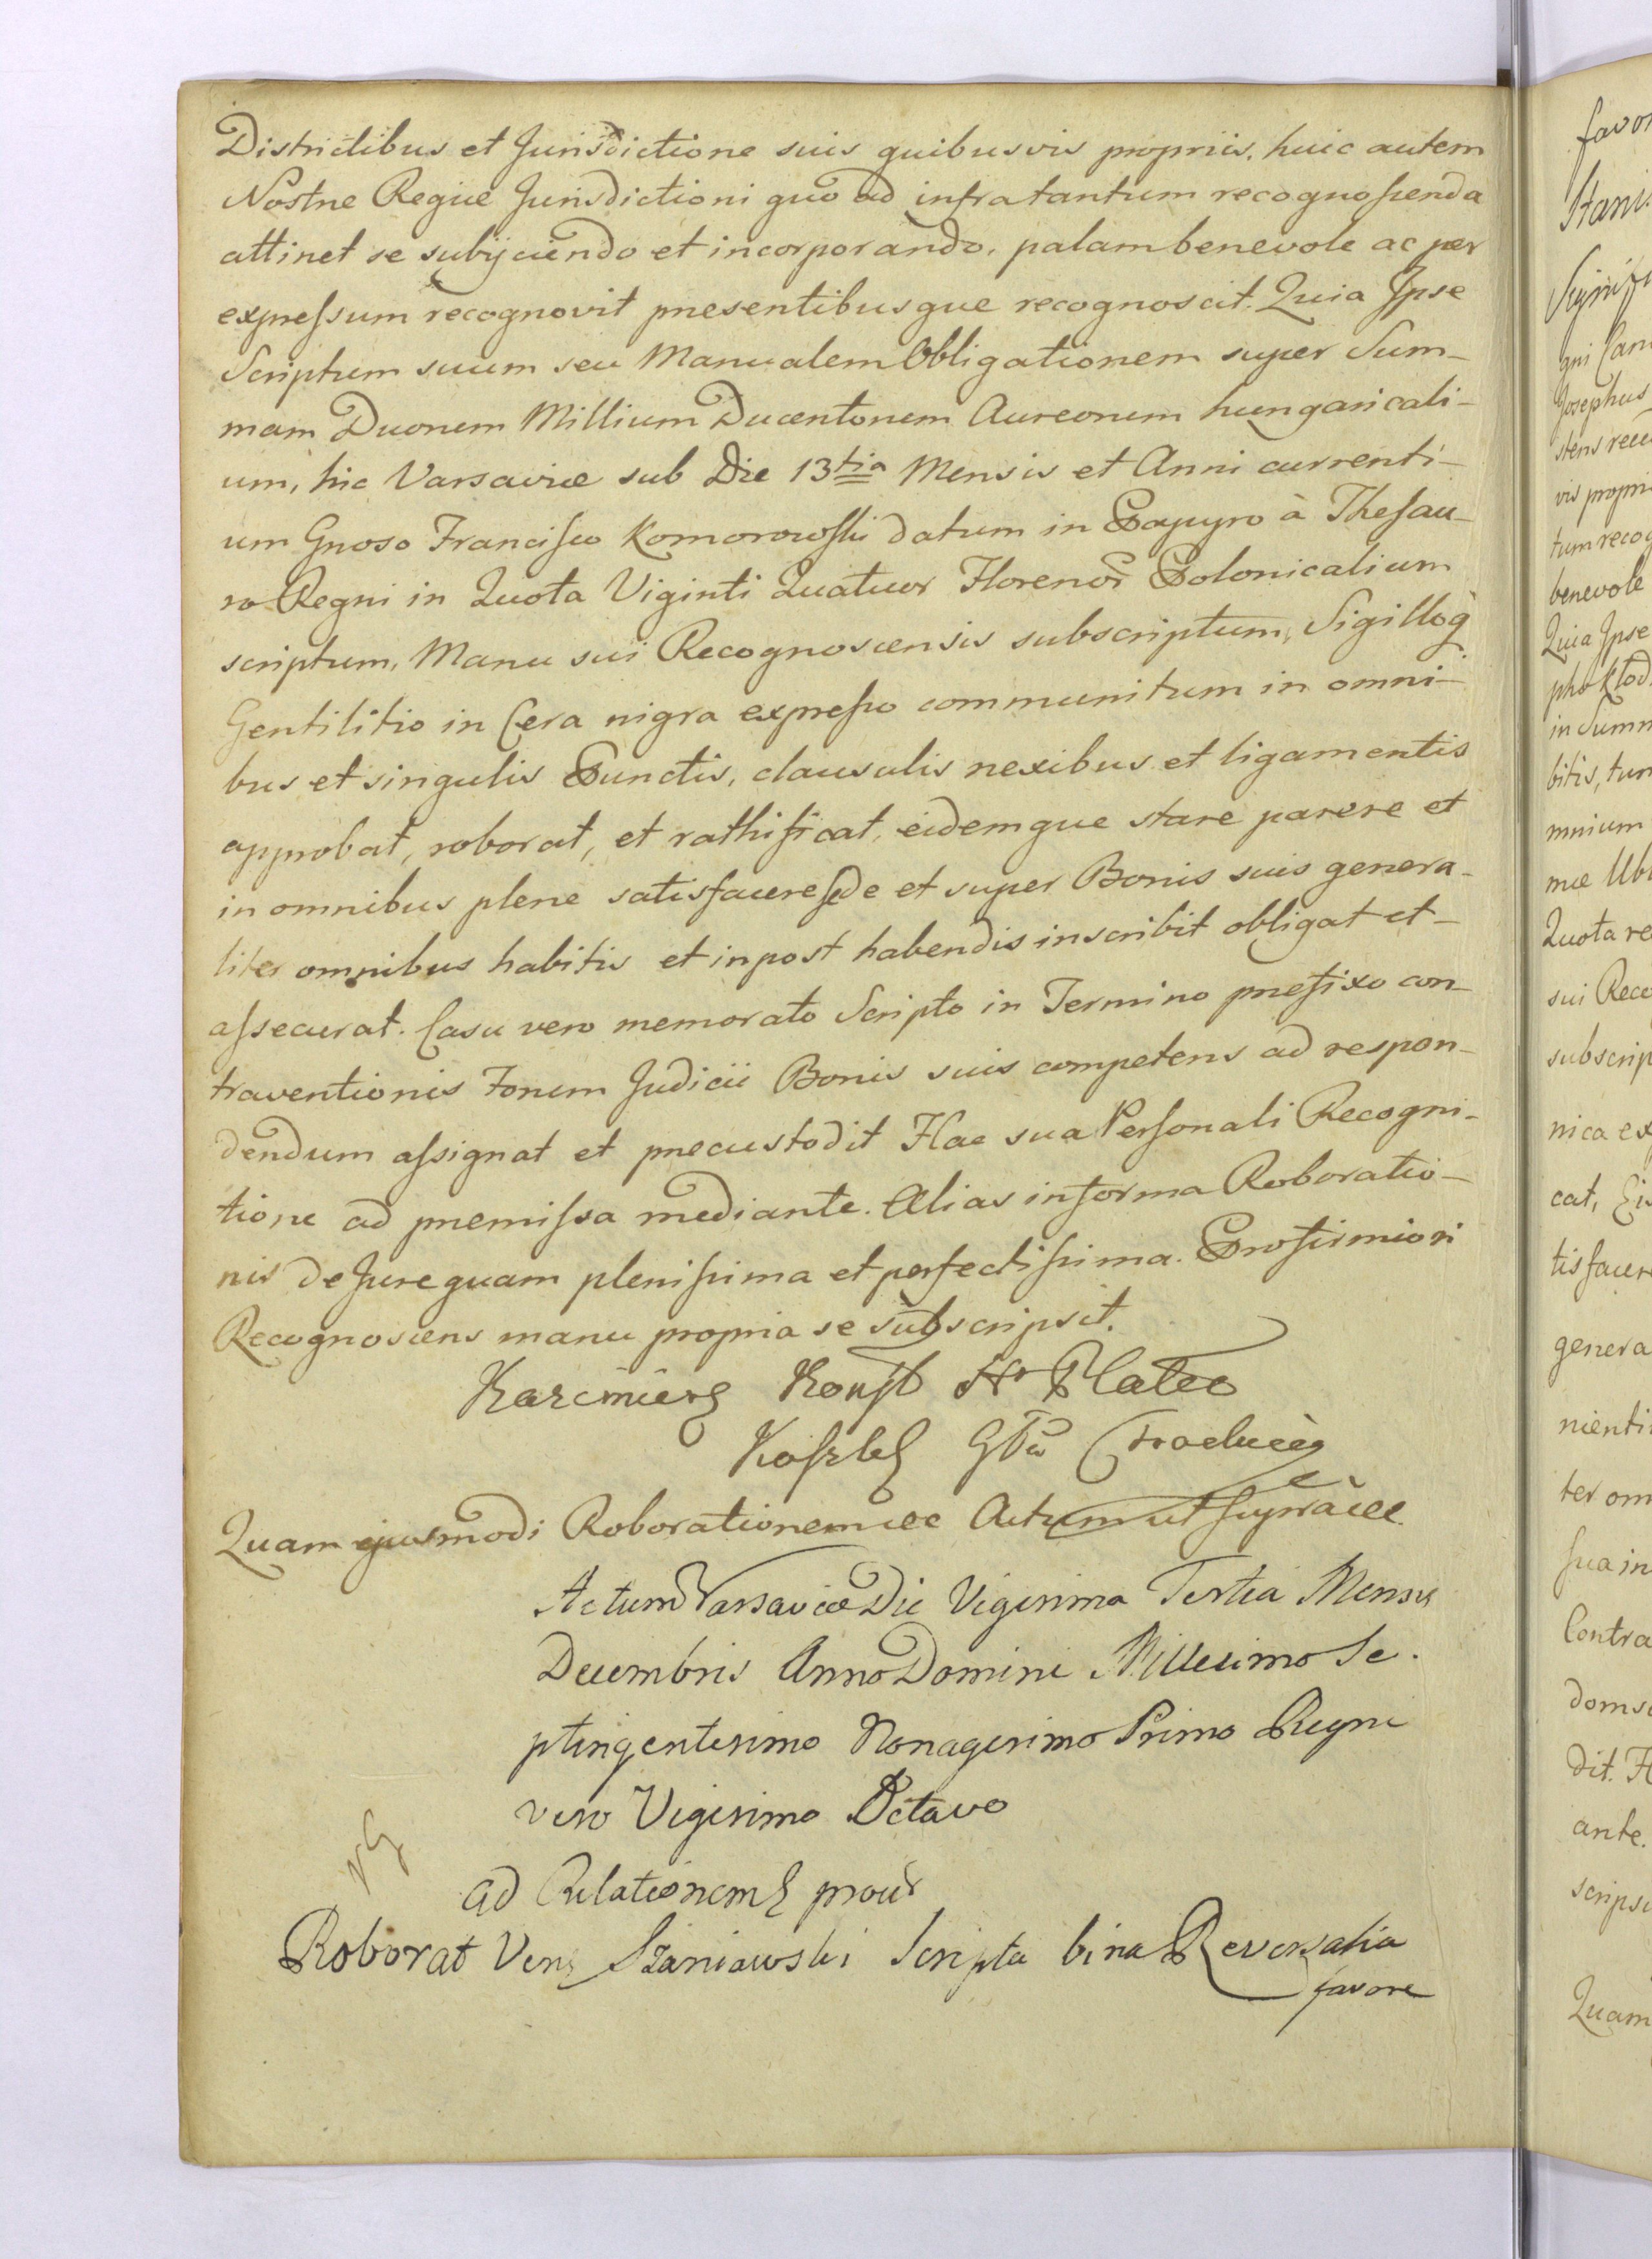 Districtibus et Jurisdictione suis quibusvis propriis, huic autem
Nostræ Regiæ Jurisdictioni quo ad infra tantum recognoscenda
attinet se subijciendo et incorporando, palam benevole ac per
expressum recognovit præsentibusque recognoscit. Quia Ipse
Scriptum suum seu Manualem Obligationem super Sum-
mam Duorum Millium Ducentorum Aureorum hungaricali-
um, hic Varsaviæ sub Die 13tia Mensis et Anni currenti-
um Gnoso Francisco Komorowski datum in Papyro à Thesau-
ro Regni in Quota Viginti Quatuor Florenor Polonicalium
scriptum, Manu sui Recognoscensis subscriptum, Sigilloq
Gentilitio in Cera nigra expresso communitum in omni-
bus et singulis Punctis, clausulis nexibus et ligamentis
approbat, roborat, et rathificat, eidemque stare parere et
in omnibus plene satisfacere sede et super Bonis suis genera-
liter omnibus habitis et inpost habendis inscribit obligat et
assecurat. Casu vero memorato Scripto in Termino præfixo con-
traventionis Forum Judicii Bonis suis competens ad respon-
dendum assignat et præcustodit Hac sua Personali Recogni-
tione ad præmissa mediante. Alias in forma Roboratio-
nis de Jure quam plenissima et perfectissima. Pro firmiori
Recognoscens manu propria se subscripsit.
Kazimierz Konst Hr Plater
Kasztel
Quam ejusmodi Roborationem Actum ut supra
Actum Varsaviæ Die Vigesima Tertia Mensis
Decembris Anno Domini Millesimo Se
ptingentesimo Nonagesimo Primo Regni
vero Vigesimo Octavo
ad Relationem
Roborat Szaniawski Scripta bina Reversalia
favore
favor
Stani
gni Can
Josephus
stens reco
vis propri
tum recog
benevole
Quia Ipse
pho Kłod
in Summ
bitis, tum
mnium
mæ Ub
Quota re
sui Reco
subscrip
nica ex
cat, Eid
tisfacer
genera
nienti
ter om
sua in
Contra
dom s
dit. H
ante.
scripsi
Quam